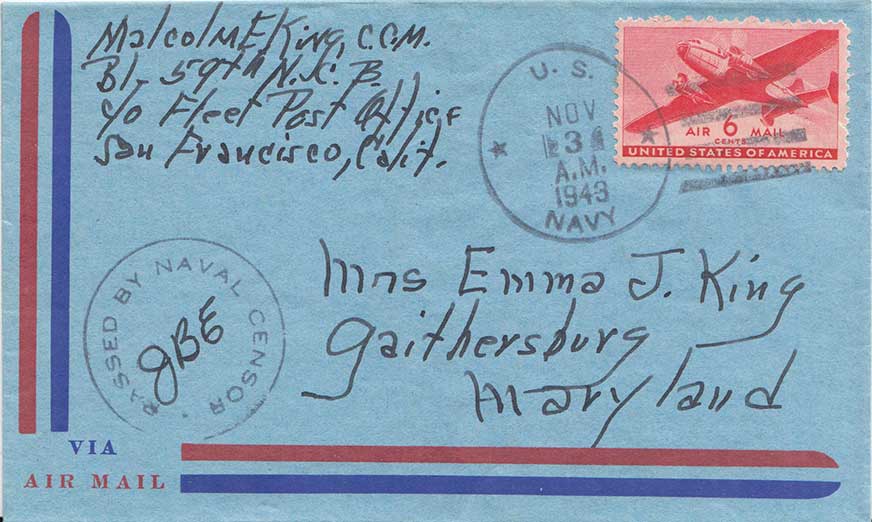 Malcolm E King, C.C.M.
B1- 59th N.C.B.
c/o Fleet Post Office
San Francisco, Calif.
U. S.
NOV
3
A.M.
1943
NAVY
AIR 6 MAIL
CENTS
UNITED STATES OF AMERICA
PASSED BY NAVAL CENSOR
JBE
Mrs Emma J. King
Gaithersburg
Maryland
VIA
AIR MAIL